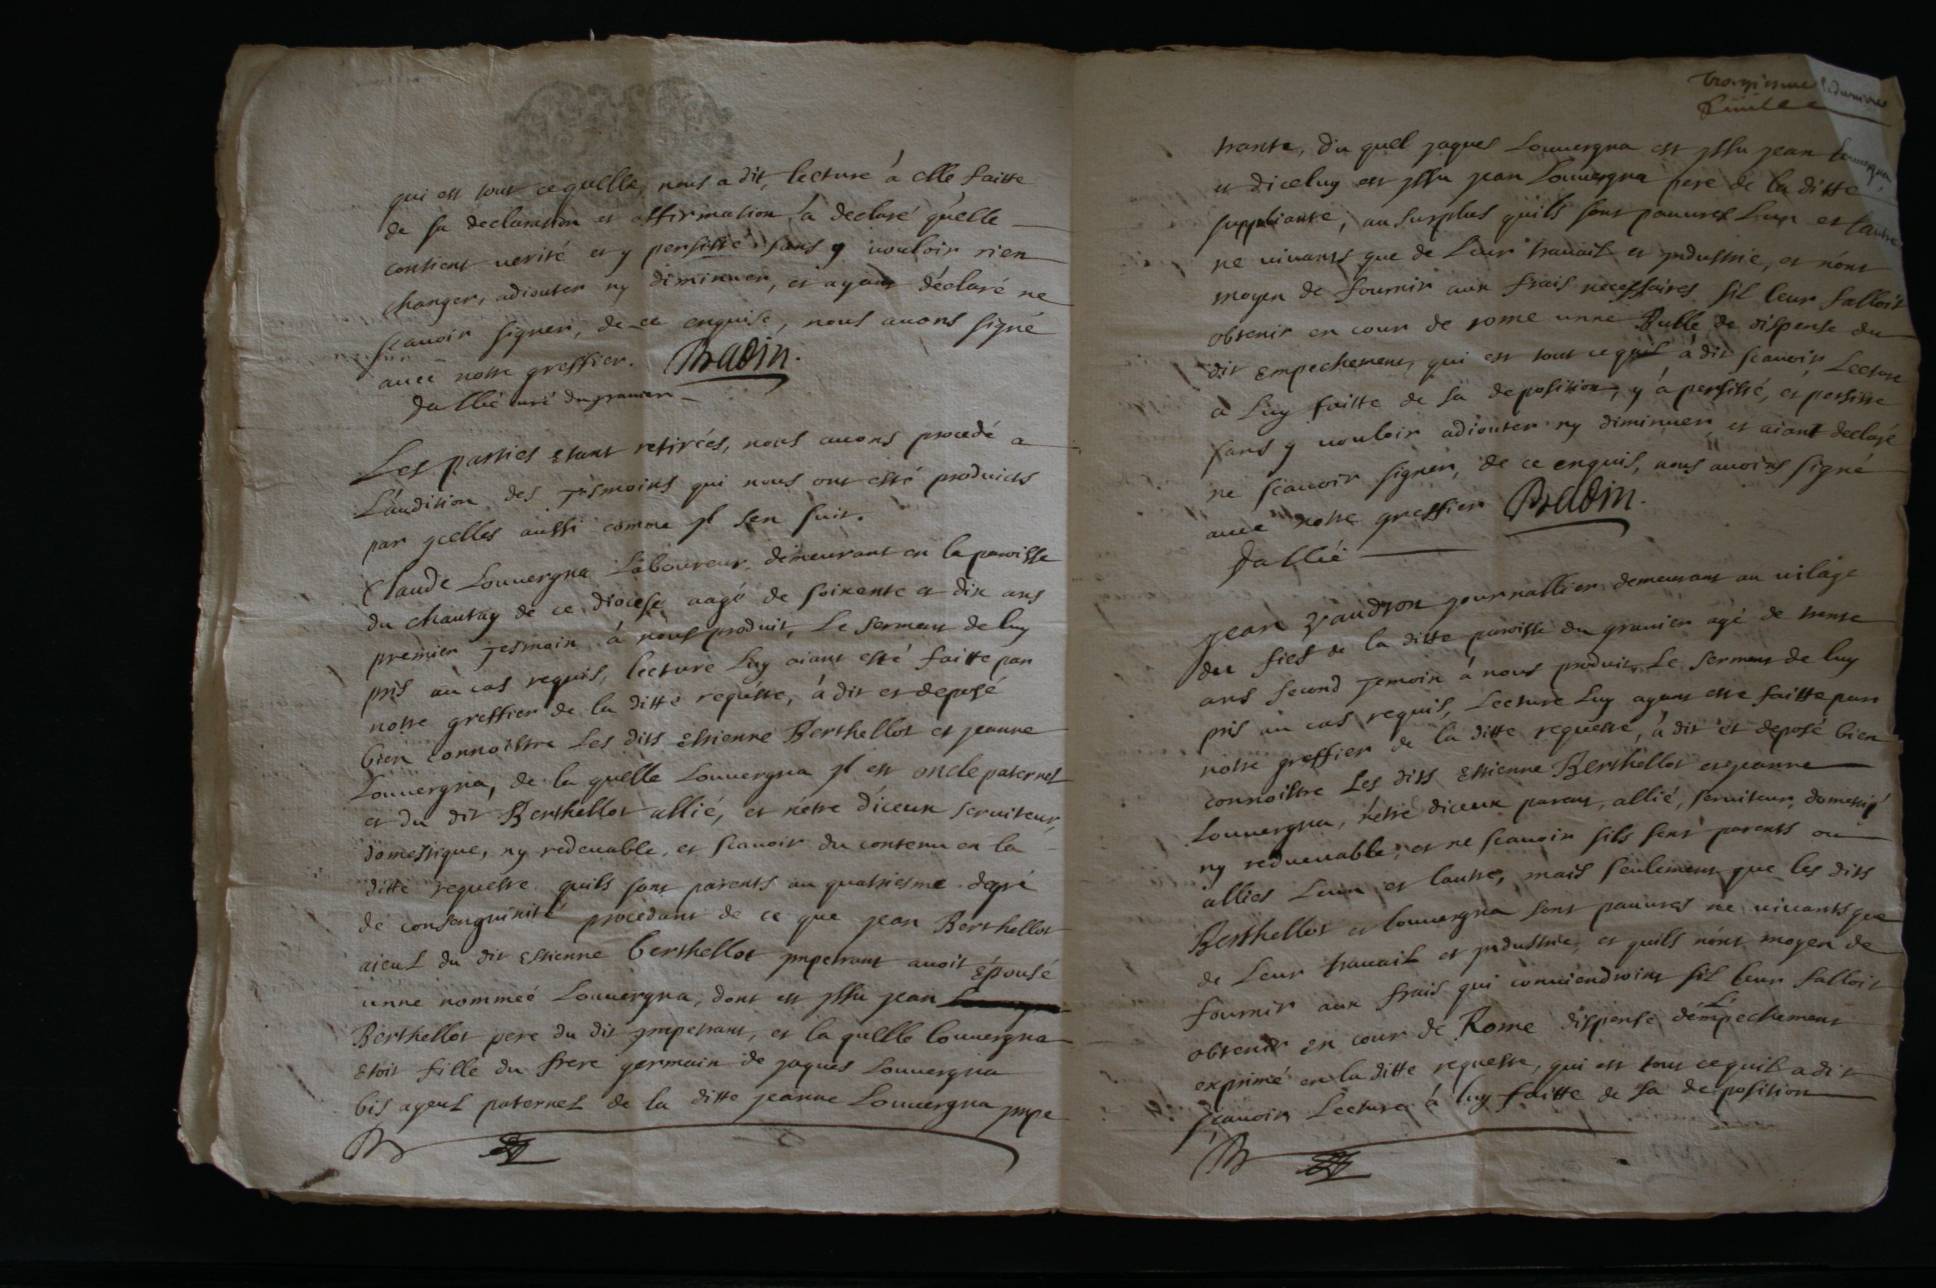 qui est tout ce quelle nous a dit, lecture à elle faitte
de sa declaration et affirmation la declaré quelle
contient verité et y persisté sans y vouloir rien
changer, adiouter ny diminuer, et ayant déclaré ne
scavoir signer, de ce enquise, nous avons signé
avec notre greffier. Badin.
Dallié curé du gravier
Les parties étant retirées, nous avons procedé a
L'audition des Tesmoins qui nous ont esté produicts
par ycelles aussi comme jl s'en suit.
Claude Louvergna Laboureur demeurant en la paroisse
du chautay de ce diocese aagé de soixente et dix ans
premier Tesmoin à nous produit, Le serment de luy
pris au cas requis, lecture luy aiant esté faitte par
notre greffier de la ditte requeste, à dit et deposé
bien connoistre Les dits Estienne Berthellot et jeanne
Louvergna, de la quelle Louvergna jl est oncle paternel
et du dit Berthellot allié, et n'etre d'iceux serviteur,
domestique, ny redevable, et scavoir du contenu en la
ditte requeste quils sont parents au quatriesme degré
de consenguinité procedant de ce que jean Berthellot
aieul du dit Estienne berthellot jmpetrant avoit épousé
unne nommeé Louvergna, dont est jssu jean
Berthellot pere du dit jmpetrant, et la quelle louvergna
étoit fille du frere germain de jaques Louvergna
bis ayeul paternel de la ditte jeanne Louvergna jmpe
troisiesme
trante, du quel jaques Louvergna est jssu jean Louvergna,
et diceluy est jssu jean Louvergna pere de la ditte
suppliante, au surplus quils sont pauvres Lun et lautre
ne vivants que de Leur travail et jndustrie, et n'ont
moyen de fournir aux frais necessaires sil leur falloit
obtenir en cour de rome unne Bulle de dispense du
dit Empechement, qui est tout ce quil à dit scavoir, Lecture
a Luy faitte de sa deposition, y à persisté, et persiste
sans y vouloir adiouter ny diminuer et aiant declaré
ne scavoir signer, de ce enquis, nous avoins signé
avec notre greffier Badin.
Dallié
jean vaudron journallier demeurant au vilage
du fief de la ditte paroisse du gravier agé de trente
ans second Temoin à nous produit, Le serment de luy
pris au cas requis, Lecture Luy ayant esté faitte par
notre greffier de la ditte requeste, à dit et deposé bien
connoistre Les dits Estienne Berthellot et jeanne
Louvergna, n'etre diceux parent, allié, serviteur, domestiq
ny redevable, et ne scavoir sils sont parents ou
alliés Lun et lautre, mais seulement que les dits
Berthellot et louvergna sont pauvres ne vivants que
de Leur travail et jndustrie, et quils n'ont moyen de
fournir aux frais qui conviendroint sil leur falloit
obtenir en cour de Rome dispense d'émpechement
exprimé en la ditte requeste, qui est tout ce quil a dit
scavoir, Lecture à luy faitte de sa deposition